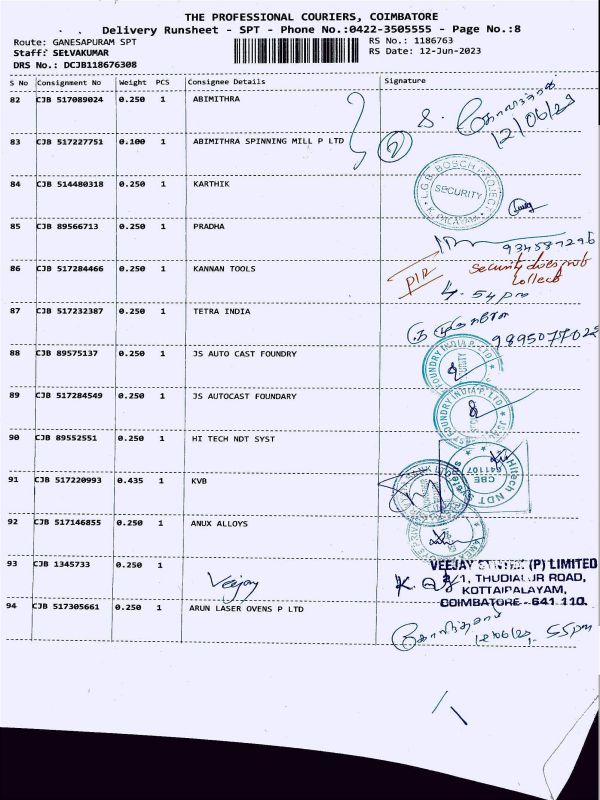 THE PROFESSIONAL COURIERS, COIMBATORE
Delivery Runsheet - SPT - Phone No.:0422-3505555 - Page No.:8
Route: GANESAPURAM SPT RS No.: 1186763
Staff: SELVAKUMAR RS Date: 12-Jun-2023
DRS No.: DCJB118676308
S No Consignment No Weight PCS Consignee Details Signature
82 CJB 517089024 0.250 1 ABIMITHRA
12/06/23
83 CJB 517227751 0.100 1 ABIMITHRA SPINNING MILL P LTD 2
84 CJB 514480318 0.250 1 KARTHIK
L.G.B. BOSCH PROJECT
SECURITY
85 CJB 89566713 0.250 1 PRADHA
86 CJB 517284466 0.250 1 KANNAN TOOLS
Security does not
collect
4.54 pm
87 CJB 517232387 0.250 1 TETRA INDIA
88 CJB 89575137 0.250 1 JS AUTO CAST FOUNDRY
FOUNDRY INDIA P. LTD
89 CJB 517284549 0.250 1 JS AUTOCAST FOUNDARY
FOUNDRY INDIA P. LTD
90 CJB 89552551 0.250 1 HI TECH NDT SYST
Hitech NDT Systems
CBE
641107
91 CJB 517220993 0.435 1 KVB
92 CJB 517146855 0.250 1 ANUX ALLOYS
93 CJB 1345733 0.250 1
Veejay
VEEJAY SYNTEX (P) LIMITED
THUDIALUR ROAD,
KOTTAIPALAYAM,
COIMBATORE - 641 110.
94 CJB 517305661 0.250 1 ARUN LASER OVENS P LTD